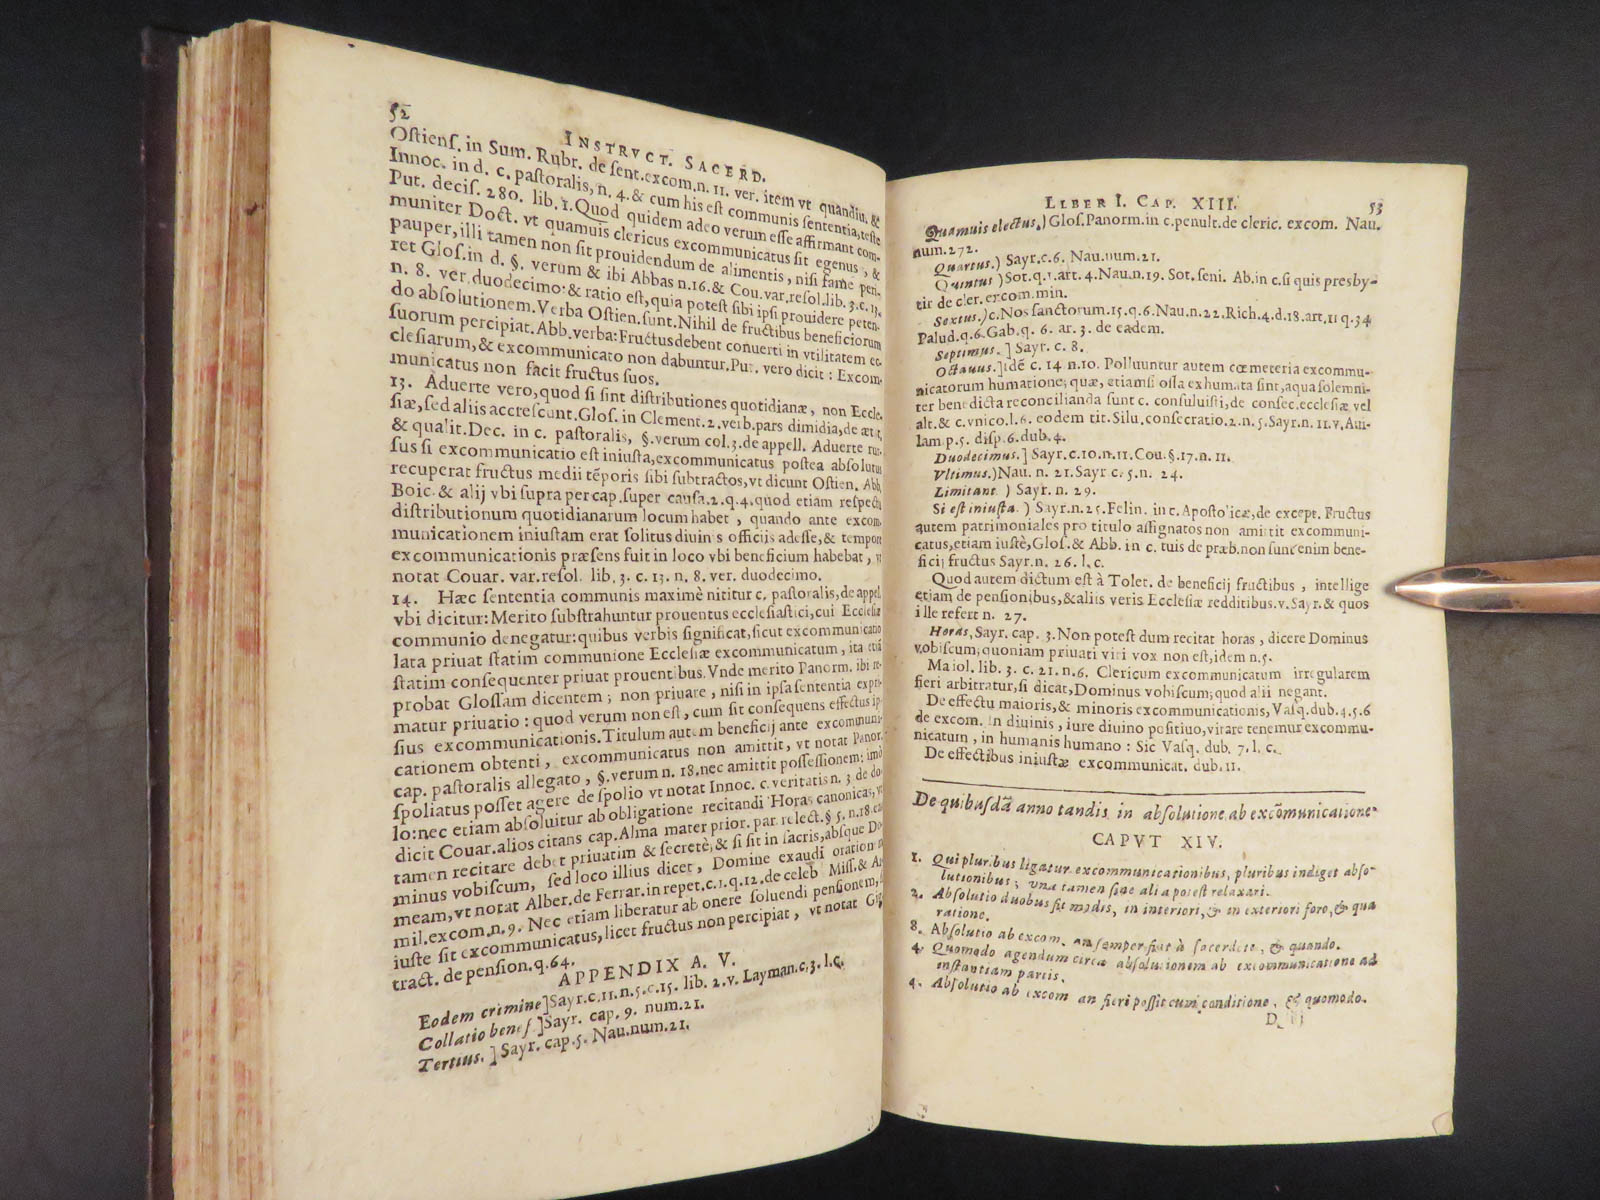 52
INSTRVCT. SACERD.
Ostiens. in Sum. Rubr. de sent.excom.n. 11. ver. item vt quandiu. &
Innoc. in d. c. pastoralis, n. 4. & cum his est communis sententia, teste
Put. decis. 280. lib. 1. Quod quidem adeo verum esse affirmant com-
muniter Doct. vt quamuis clericus excommunicatus sit egenus, &
pauper, illi tamen non sit prouidendum de alimentis, nisi fame peri-
ret Glos. in d. §. verum & ibi Abbas n.16. & Cou.var.resol.lib. 3.c.13.
n. 8. ver. duodecimo: & ratio est, quia potest sibi ipsi prouidere peten-
do absolutionem. Verba Ostien. sunt. Nihil de fructibus beneficiorum
suorum percipiat. Abb. verba: Fructus debent conuerti in vtilitatem ec-
clesiarum, & excommunicato non dabuntur. Put. vero dicit: Excom-
municatus non facit fructus suos.
13. Aduerte vero, quod si sint distributiones quotidianæ, non Eccle-
siæ, sed aliis accrescunt. Glos. in Clement. 2. verb. pars dimidia, de ætat.
& qualit. Dec. in c. pastoralis, §. verum col. 3. de appell. Aduerte rur-
sus si excommunicatio est iniusta, excommunicatus postea absolutus
recuperat fructus medii tẽporis sibi subtractos, vt dicunt Ostien. Abb.
Boic. & alij vbi supra per cap. super causa. 2. q. 4. quod etiam respectu
distributionum quotidianarum locum habet, quando ante excom-
municationem iniustam erat solitus diuinis officiis adesse, & tempore
excommunicationis præsens fuit in loco vbi beneficium habebat, vt
notat Couar. var. resol. lib. 3. c. 13. n. 8. ver. duodecimo.
14. Hæc sententia communis maximè nititur c. pastoralis, de appel.
vbi dicitur: Merito substrahuntur prouentus ecclesiastici, cui Ecclesiæ
communio denegatur: quibus verbis significat, sicut excommunicatio
lata priuat statim communione Ecclesiæ excommunicatum, ita etiã
statim consequenter priuat prouentibus. Vnde merito Panorm. ibi re-
probat Glossam dicentem; non priuare, nisi in ipsa sententia expri-
matur priuatio: quod verum non est, cum sit consequens effectus ip-
sius excommunicationis. Titulum autem beneficij ante excommuni-
cationem obtenti, excommunicatus non amittit, vt notat Panor.
cap. pastoralis allegato, §. verum n. 18. nec amittit possessionem; imò
spoliatus posset agere de spolio vt notat Innoc. c. veritatis n. 3 de do-
lo: nec etiam absoluitur ab obligatione recitandi Horas canonicas, vt
dicit Couar. alios citans cap. Alma mater prior. par. relect. § 5. n. 18. ea
tamen recitare debet priuatim & secretè, & si sit in sacris, absque Do-
minus vobiscum, sed loco illius dicet, Domine exaudi orationem
meam, vt notat Alber. de Ferrar. in repet. c. 1. q. 12. de celeb Miss. &
mil. excom. n. 9. Nec etiam liberatur ab onere soluendi pensionem,
iuste sit excommunicatus, licet fructus non percipiat, vt notat Gig.
tract. de pension. q. 64.
APPENDIX A. V.
Eodem crimine] Sayr. c. 11. n. 5. c. 15. lib. 2. v. Layman. c. 3. l. c.
Collatio benef.] Sayr. cap. 9. num. 21.
Tertius.] Sayr. cap. 5. Nau. num. 21.
LIBER I. CAP. XIII. 53
Quamuis electus.) Glos. Panorm. in c. penult. de cleric. excom. Nau.
num. 272.
Quartus.) Sayr. c. 6. Nau. num. 21.
Quintus) Sot. q. 1. art. 4. Nau. n. 19. Sot. seni. Ab. in c. si quis presby-
tir de cler. ercom. min.
Sextus.) c. Nos sanctorum. 15. q. 6. Nau. n. 22. Rich. 4. d. 18. art. 11 q. 34
Palud. q. 6. Gab. q. 6. ar. 3. de eadem.
Septimus.] Sayr. c. 8.
Octauus.] idẽ c. 14 n. 10. Polluuntur autem cœmeteria excommu-
nicatorum humatione; quæ, etiamsi ossa exhumata sint, aqua solemni-
ter benedicta reconcilianda sunt c. consuluisti, de consec. ecclesiæ vel
alt. & c. vnico. l. 6. eodem tit. Silu. consecratio. 2. n. 5. Sayr. n. 11. v. Aui-
lam p. 5. disp. 6. dub. 4.
Duodecimus.] Sayr. c. 10. n. 11. Cou. §. 17. n. 11.
Vltimus.) Nau. n. 21. Sayr c. 5. n. 24.
Limitant) Sayr. n. 29.
Si est iniusta.) Sayr. n. 25. Felin. in c. Apostolicæ, de except. Fructus
autem patrimoniales pro titulo assignatos non amittit excommuni-
catus, etiam iustè, Glos. & Abb. in c. tuis de præb. non sunt enim bene-
ficij fructus Sayr. n. 26. l. c.
Quod autem dictum est à Tolet. de beneficij fructibus, intellige
etiam de pensionibus, & aliis veris Ecclesiæ redditibus. v. Sayr. & quos
ille refert n. 27.
Horas, Sayr. cap. 3. Non potest dum recitat horas, dicere Dominus
vobiscum; quoniam priuati viri vox non est, idem n. 5.
Maiol. lib. 3. c. 21. n. 6. Clericum excommunicatum irregularem
fieri arbitratur, si dicat, Dominus vobiscum; quod alii negant.
De effectu maioris, & minoris excommunicationis, Vasq. dub. 4. 5. 6
de excom. In diuinis, iure diuino positiuo, vitare tenemur excommu-
nicatum, in humanis humano: Sic Vasq. dub. 7. l. c.
De effectibus iniustæ excommunicat. dub. 11.
De quibusdã anno tandis in absolutione ab excõmunicatione
CAPVT XIV.
1. Qui pluribus ligatur excommunicationibus, pluribus indiget abso-
lutionibus; vna tamen sine alia potest relaxari.
2. Absolutio duobus fit modis, in interiori, & in exteriori foro, & qua
ratione.
8. Absolutio ab excom. an semper fiat à sacerdote, & quando.
4. Quomodo agendum circa absolutionem ab excommunicatione ad
instantiam partis.
4. Absolutio ab excom an fieri possit cum conditione, & quomodo.
D